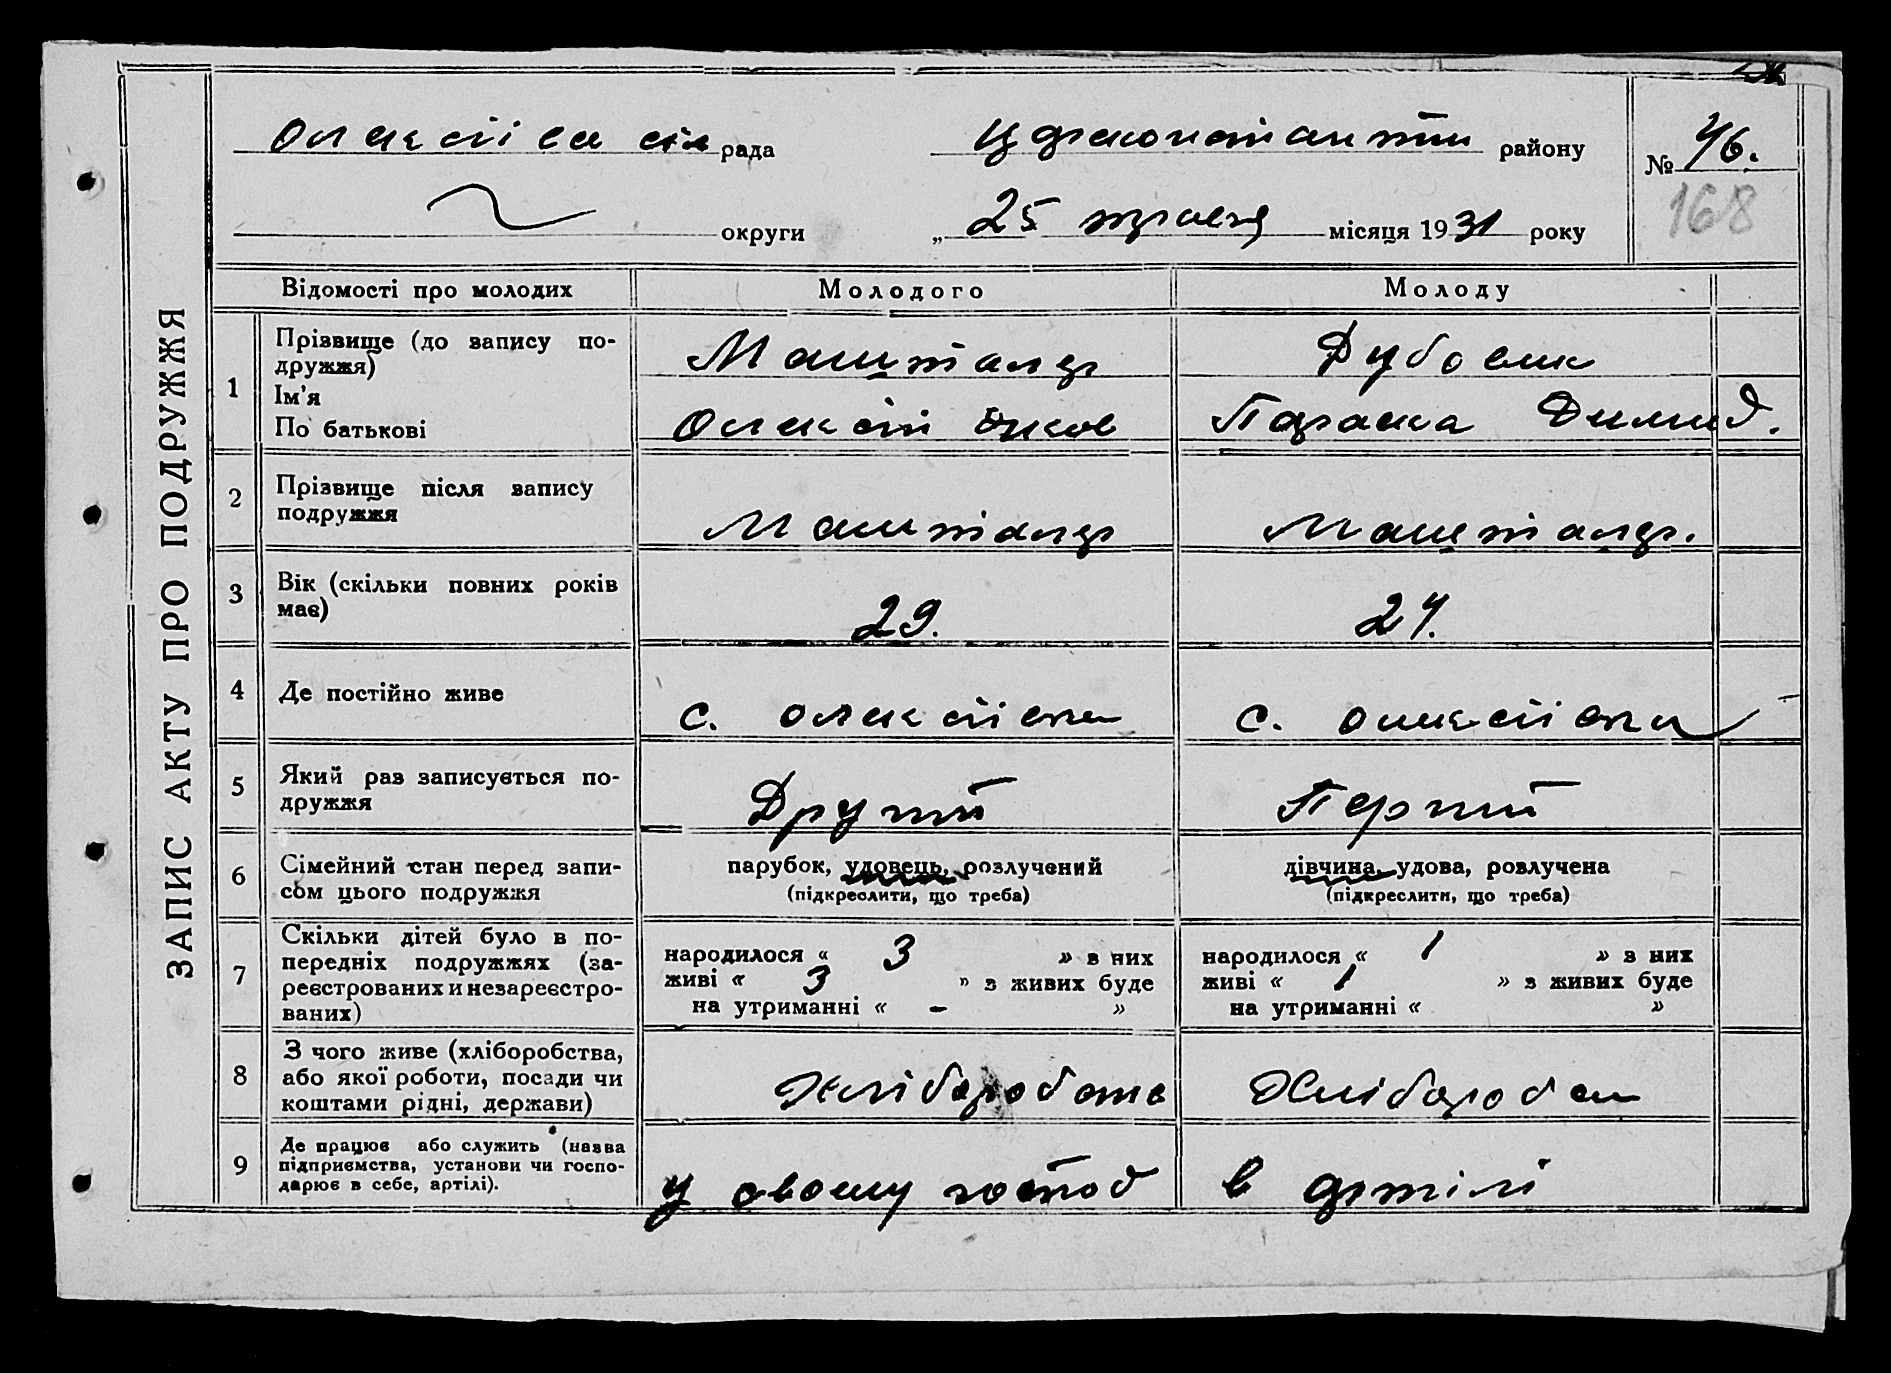 ЗАПИС АКТУ ПРО ПОДРУЖЖЯ
Олексіївс сіл рада
Цареконстантин району
№ 46.
168
округи
„ 25 травня місяця 1931 року
Відомості про молодих
Молодого
Молоду
1
Прізвище (до запису по-
дружжя)
Ім'я
По батькові
Машталяр
Олексій Яков
Дубовик
Параска Димид.
2
Прізвище після запису
подружжя
Машталяр
Машталяр.
3
Вік (скільки повних років
має)
29.
24.
4
Де постійно живе
с. Олексіївка
с. Олексіївка
5
Який раз записується по-
дружжя
Другий
Перший
6
Сімейний стан перед запи-
сом цього подружжя
парубок, удовець, розлучений
(підкреслити, що треба)
дівчина, удова, розлучена
(підкреслити, що треба)
7
Скільки дітей було в по-
передніх подружжях (за-
реєстрованих и незареєстро-
ваних)
народилося « 3 » з них
живі « 3 » з живих буде
на утриманні « - »
народилося « 1 » з них
живі « 1 » з живих буде
на утриманні « »
8
З чого живе (хліборобства,
або якої роботи, посади чи
коштами рідні, держави)
Хліборобств
Хлібороб
9
Де працює або служить (назва
підприємства, установи чи госпо-
дарює в себе, артілі).
у своему господ
в артілі